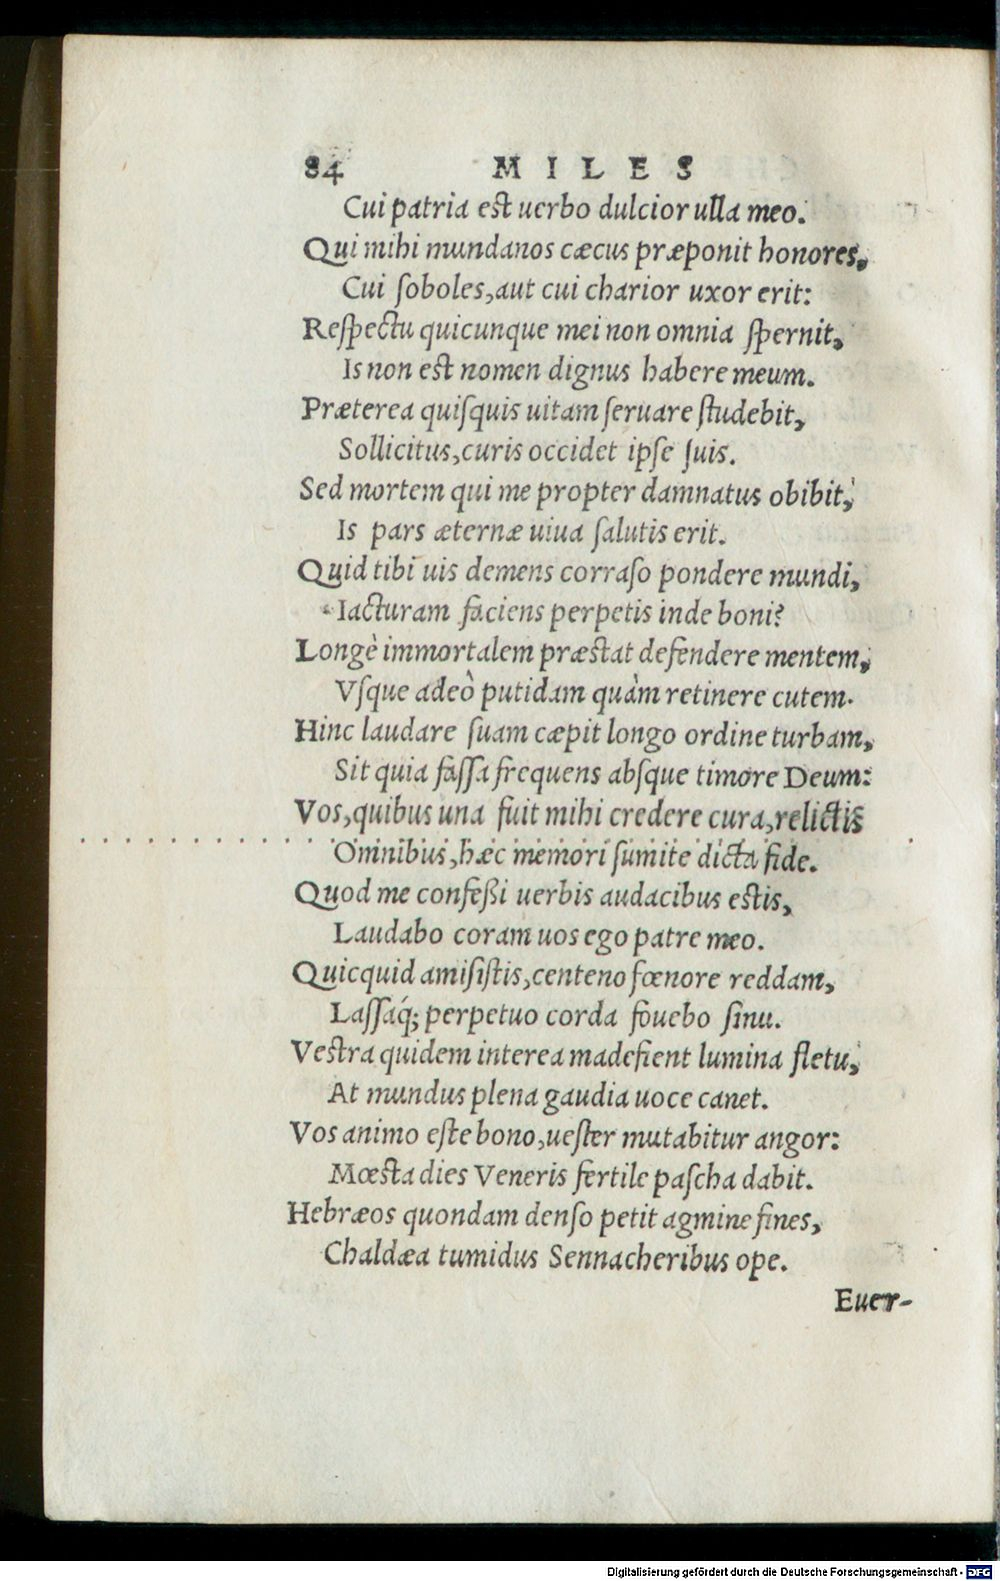 84 MILES
Cui patria est uerbo dulcior ulla meo.
Qui mihi mundanos cæcus præponit honores,
Cui ſoboles, aut cui charior uxor erit:
Reſpectu quicunque mei non omnia ſpernit,
Is non est nomen dignus habere meum.
Præterea quiſquis uitam ſeruare ſtudebit,
Sollicitus, curis occidet ipſe ſuis.
Sed mortem qui me propter damnatus obibit,
Is pars æternæ uiua ſalutis erit.
Quid tibi uis demens corraſo pondere mundi,
Iacturam faciens perpetis inde boni?
Longè immortalem præstat defendere mentem,
Vſque adeò putidam quàm retinere cutem.
Hinc laudare ſuam cæpit longo ordine turbam,
Sit quia faſſa frequens abſque timore Deum:
Vos, quibus una fuit mihi credere cura, relictis
Omnibus, hæc memori ſumite dicta fide.
Quod me confeßi uerbis audacibus estis,
Laudabo coram uos ego patre meo.
Quicquid amiſiſtis, centeno fœnore reddam,
Laſſaq́; perpetuo corda fouebo ſinu.
Vestra quidem interea madefient lumina fletu,
At mundus plena gaudia uoce canet.
Vos animo eſte bono, ueſter mutabitur angor:
Mœsta dies Veneris fertile paſcha dabit.
Hebræos quondam denſo petit agmine fines,
Chaldæa tumidus Sennacheribus ope.
Euer-
Digitalisierung gefördert durch die Deutsche Forschungsgemeinschaft - DFG